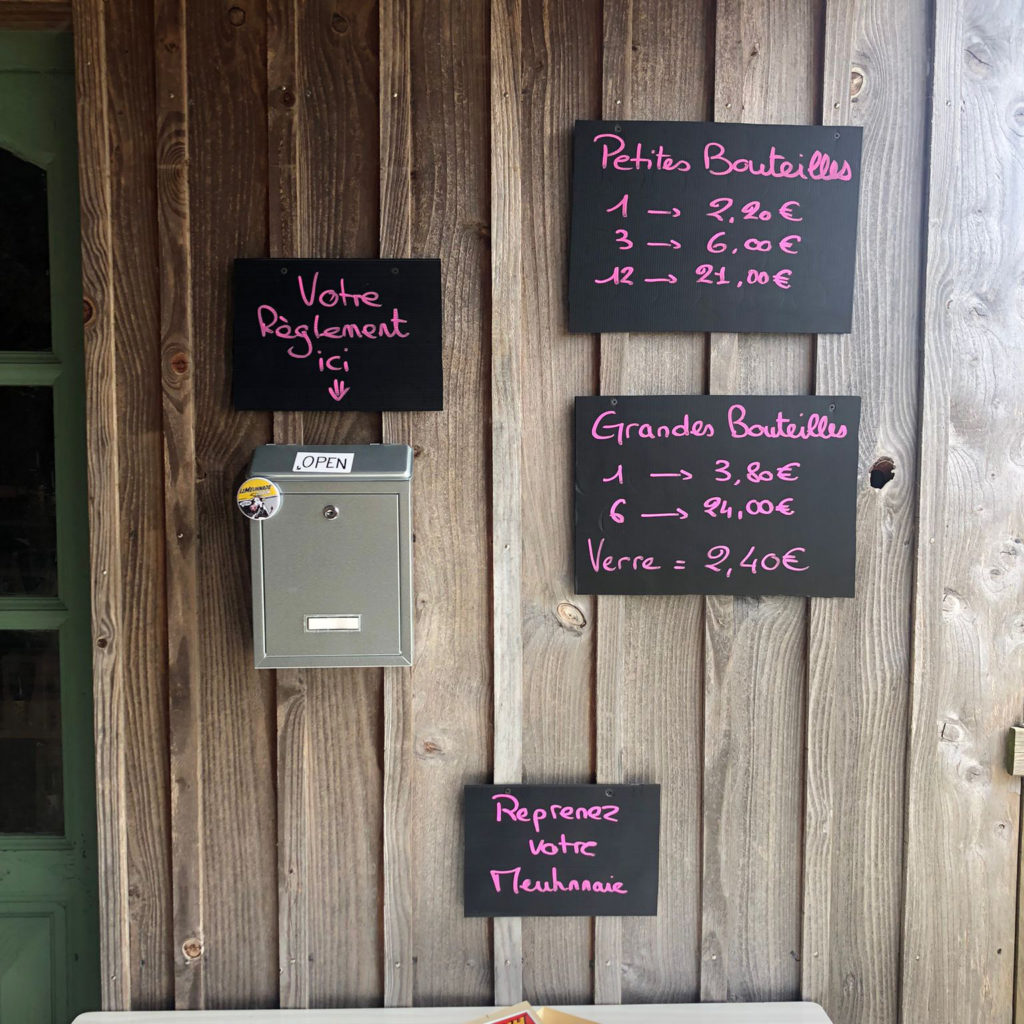 Votre
Règlement
ici
OPEN
Petites Bouteilles
1 → 2,20€
3 → 6,00€
12 → 21,00€
Grandes Bouteilles
1 → 3,80€
6 → 24,00€
Verre = 2,40€
Reprenez
votre
Meuhnnaie